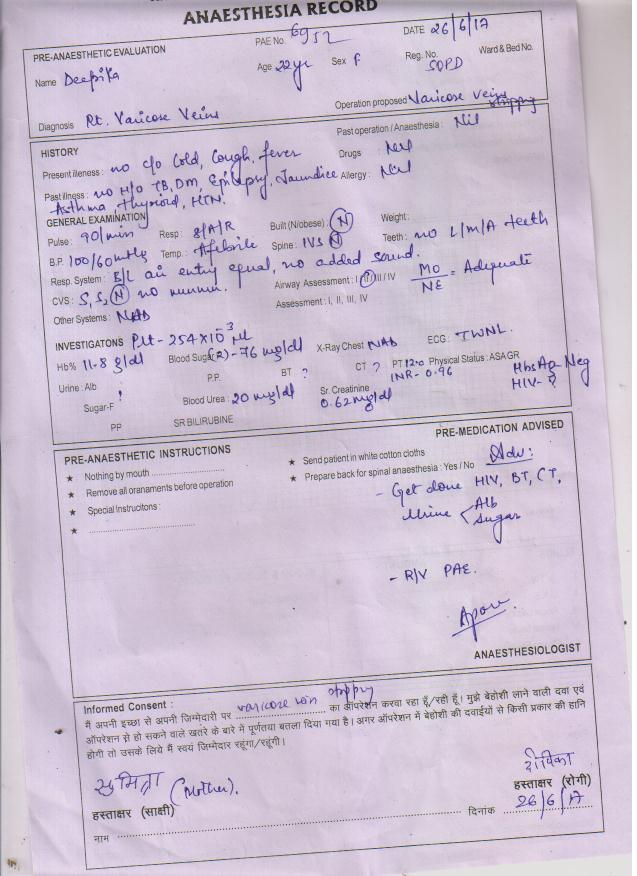 ANAESTHESIA RECORD
PRE-ANAESTHETIC EVALUATION PAE No. 6952 DATE 26/6/17
Name Deepika Age 22yr Sex F Reg. No. SOPD Ward & Bed No.
Diagnosis Rt. Varicose Veins Operation proposed Varicose Veins stripping
HISTORY Past operation / Anaesthesia : Nil
Present illeness : no c/o Cold, Cough, fever Drugs : Nil
Past illness : no H/o TB, DM, Epilepsy, Jaundice Allergy : Nil
Asthma thyroid, HTN.
GENERAL EXAMINATION
Pulse : 90/min Resp : 8/A/R Built (N/obese) : N Weight :
B.P. 100/60mmHg Temp. : Afebrile Spine : IVS N Teeth : no L/M/A teeth
Resp. System : B/L air entry equal, no added sound.
CVS : S1S2 N no murmur. Airway Assessment : I / II / III / IV MO/NE = Adequate
Other Systems : NAD Assessment : I, II, III, IV
INVESTIGATONS Plt - 254x10³ µl
Hb% 11.8 g/dl Blood Sugar (R) - 76 mg/dl X-Ray Chest NAD ECG : TWNL.
Urine : Alb P.P. BT ? CT ? PT 12.0 Physical Status : ASAGR HbsAg - Neg
INR - 0.96 HIV - ?
Sugar-F ! Blood Urea : 20 mg/dl Sr. Creatinine 0.62 mg/dl
PP SR BILIRUBINE
PRE-ANAESTHETIC INSTRUCTIONS PRE-MEDICATION ADVISED
★ Nothing by mouth ........................
★ Remove all oranaments before operation
★ Special Instrucitons :
★ ..................................
★ Send patient in white cotton cloths
★ Prepare back for spinal anaesthesia : Yes / No
Adv :
- Get done HIV, BT, CT,
Urine < Alb
Sugar
- R/V PAE.
ANAESTHESIOLOGIST
Informed Consent :
मैं अपनी इच्छा से अपनी जिम्मेदारी पर varicose vein stripping का ऑपरेशन करवा रहा हूँ/रही हूँ। मुझे बेहोशी लाने वाली दवा एवं
ऑपरेशन से हो सकने वाले खतरे के बारे में पूर्णतया बतला दिया गया है। अगर ऑपरेशन में बेहोशी की दवाईयों से किसी प्रकार की हानि
होगी तो उसके लिये मैं स्वयं जिम्मेदार रहूंगा/रहूंगी।
सुमित्रा (Mother). दीपिका
हस्ताक्षर (साक्षी) हस्ताक्षर (रोगी)
नाम ........................ दिनांक 26/6/17